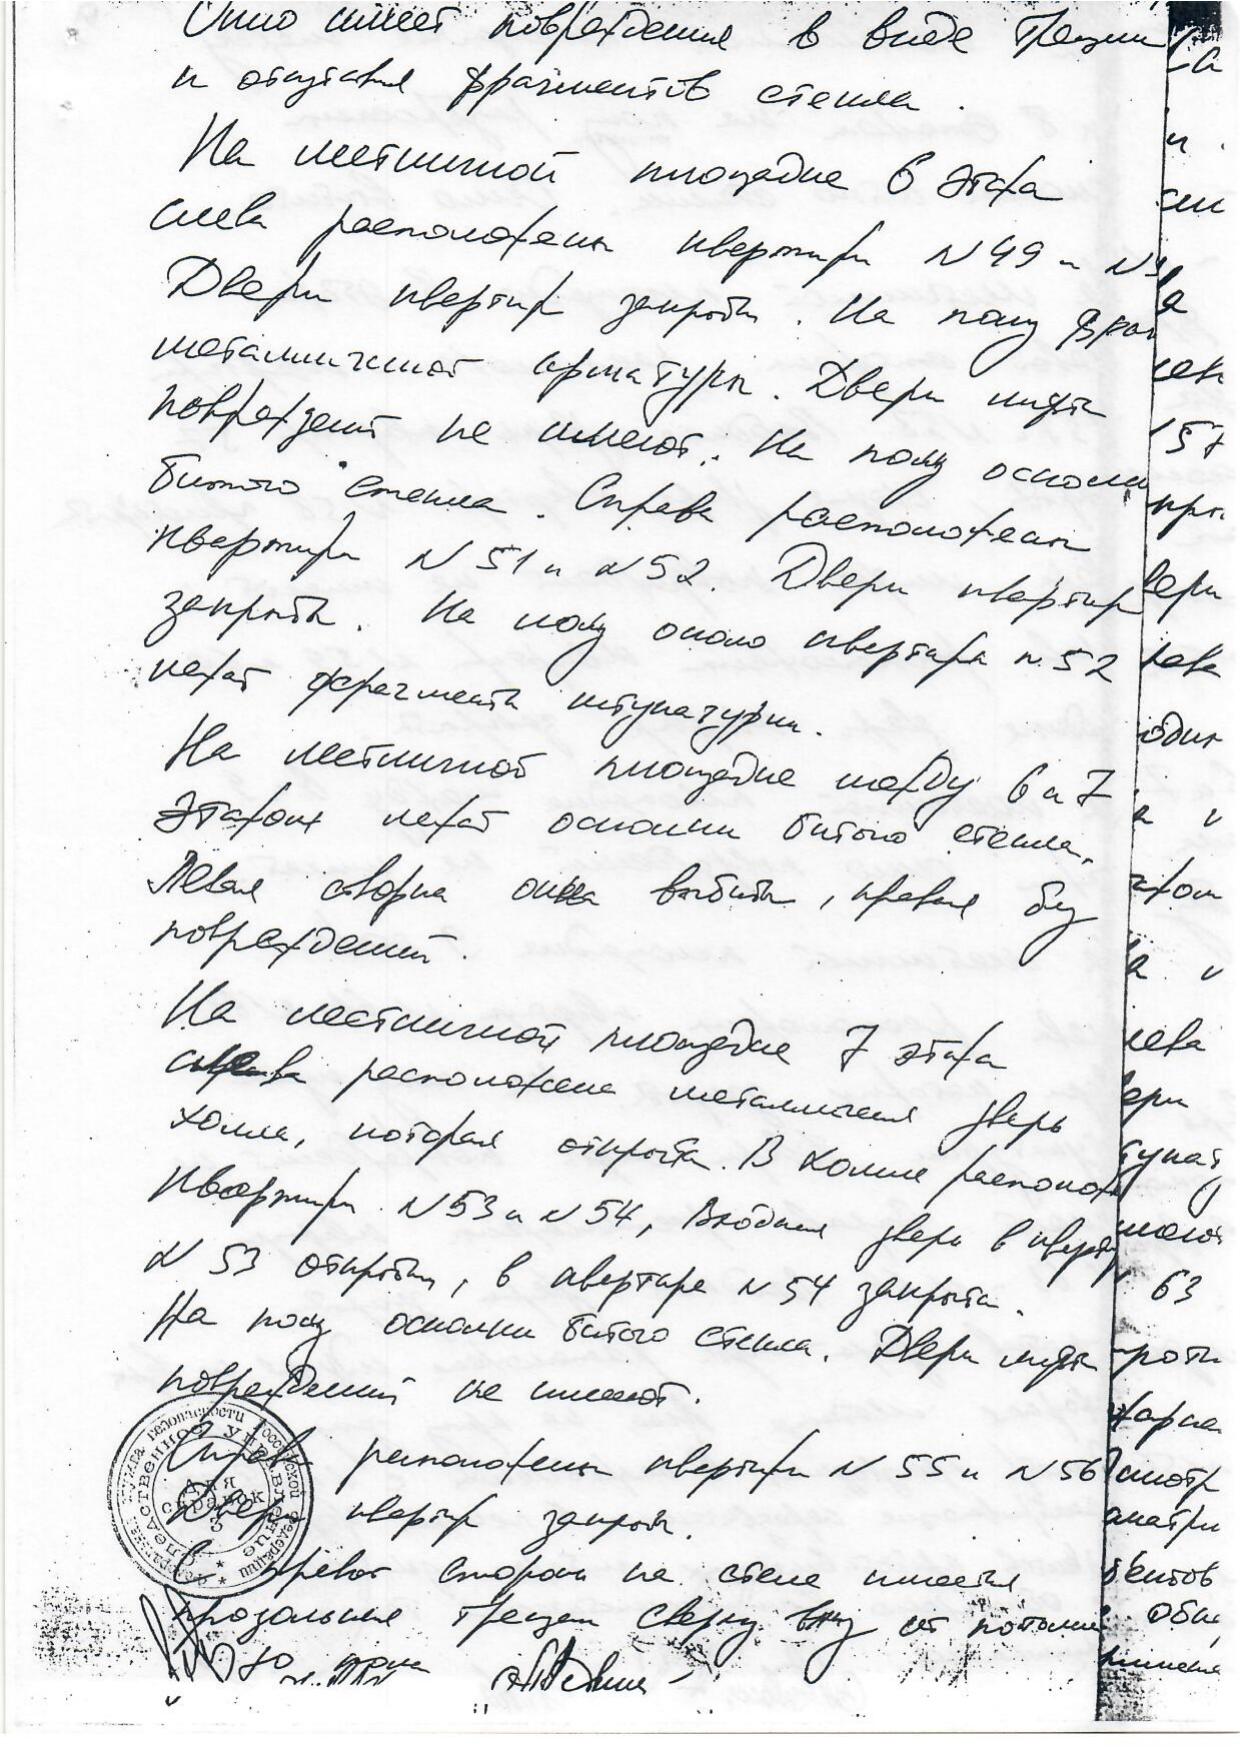 Окно имеет повреждения в виде трещин
и отсутствия фрагментов стекла.
На лестничной площадке 6 этажа
слева расположены квартиры N 49 и N
Двери квартир закрыты. На полу фраг
металлической арматуры. Двери лифта
повреждений не имеют. На полу осколки
битого стекла. Справа расположены
квартиры N 51 и N 52. Двери квартир
закрыты. На полу около квартиры N 52
лежат фрагменты штукатурки.
На лестничной площадке между 6 и 7
этажом лежат осколки битого стекла.
Левая створка окна выбита, правая без
повреждений.
На лестничной площадке 7 этажа
слева расположена металлическая дверь
холла, которая открыта. В холле располож
квартиры N 53 и N 54, входная дверь в кварти
N 53 открыта, в квартире N 54 закрыта.
На полу осколки битого стекла. Двери лифта
повреждений не имеют.
Справа расположены квартиры N 55 и N 56
Двери квартир закрыты.
С правой стороны на стене имеется
продольная трещина сверху вниз от потолка
до пола
Следственное управление
Федеральная служба безопасности Российской Федерации
Для справок
3
57
вери
лева
один
лева
вери
63